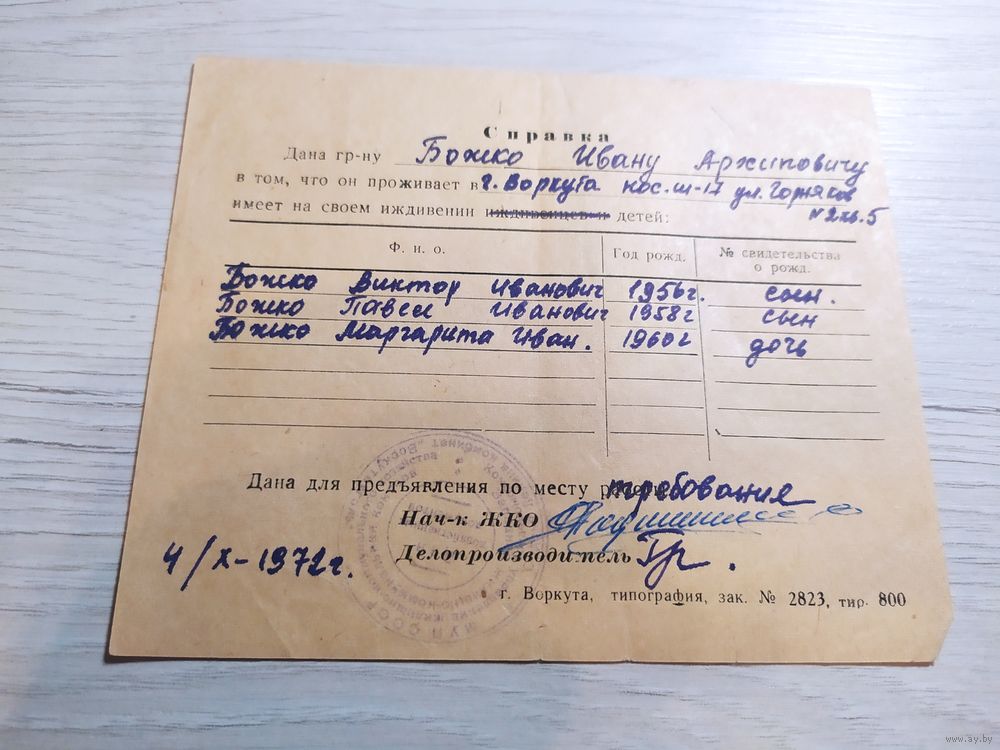 Справка
Дана гр-ну Божко Ивану Архиповичу
в том, что он проживает в г. Воркута пос. ш-17 ул. Горняков
№ 2 кв. 5
имеет на своем иждивении иждивенцев и детей:
Ф. и. о. Год рожд. № свидетельства о рожд.
Божко Виктор Иванович 1956г. сын.
Божко Павел Иванович 1958г сын
Божко Маргарита Иван. 1960г дочь
Дана для предъявления по месту требования
Нач-к ЖКО
Делопроизводитель
4/X-1972г.
г. Воркута, типография, зак. № 2823, тир. 800
www.ay.by